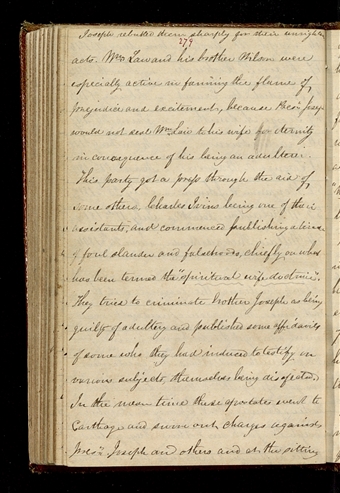 Joseph rebuked them sharply for their unright
279
acts. Wm Law and his brother Wilson were
especially active in fanning the flame of,
prejudice and excitement, because Pres. Joseph
would not seal Wm Law to his wife for eternity
in consequence of his being an adulterer.
This party got a press through the aid of,
some others Charles Ivins being one of their
assistants, and commenced publishing
of foul slander and falsehoods, chiefly on what
has been termed the "spiritual wife doctrine".
They tried to criminate brother Joseph as being
guilty of adultery and published some affidavits
of some who they had induced to testify on
various subjects, themselves being disafected.
In the mean time these apostates went to
Carthage and swore out charges against
Joseph and others and at the sitting